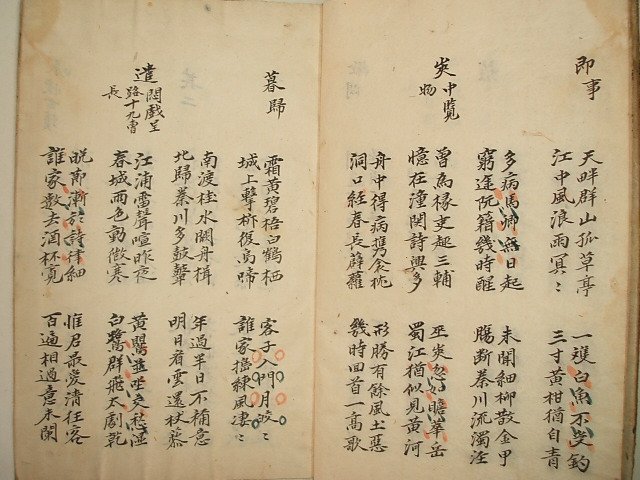 即事
天畔群山孤草亭
江中風浪雨冥ゝ
一雙白魚不受釣
三寸黄柑猶自青
多病馬卿無日起
窮途阮籍幾時醒
未聞細柳散金甲
腸斷秦川流濁涇
炎中覧物
曽為椽吏趍三輔
憶在潼関詩興多
巫炎忽如瞻華岳
蜀江猶似見黄河
舟中得病移衾枕
洞口経春長薜蘿
形勝有餘風土惡
幾時回首一高歌
暮歸
霜黄碧梧白鶴栖
城上擊柝復烏啼
客子入門月皎ゝ
誰家搗練風凄ゝ
南渡桂水闕舟楫
北歸秦川多鼓鼙
年過半日不稱意
明日看雲還杖藜
遣悶戯呈
路十九曹
長
江浦雷聲喧昨夜
春城雨色動微寒
黄鸝並坐交愁濕
白鷺群飛太劇乾
晩節漸於詩律細
誰家數去酒杯寛
惟君最愛清狂客
百遍相過意未闌